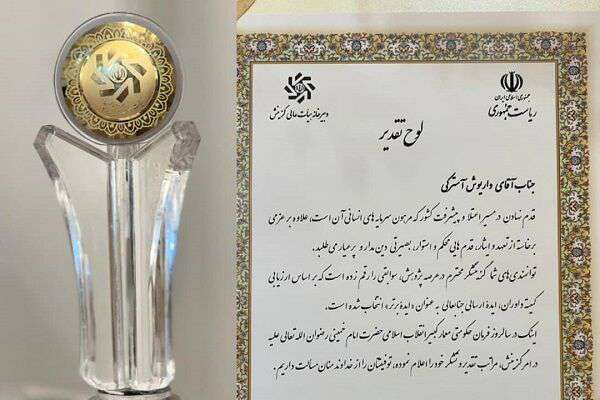 جمهوری اسلامی ایران
ریاست جمهوری
دبیرخانه هیات عالی گزینش
لوح تقدیر
جناب آقای داریوش آسترکی
قدم نهادن در مسیر اعتلا و پیشرفت کشور که مرهون سرمایه های انسانی آن است، علاوه بر عزمی
برخاسته از تعهد و ایثار، قدم هایی محکم و استوار، بصیرتی دین مدار و پرعیار می طلبد.
توانمندی های شما گزینشگر محترم در عرصه پژوهش، سوابقی را رقم زده است که بر اساس ارزیابی
کمیته داوران، ایده ارسالی جنابعالی به عنوان «ایده برتر» انتخاب شده است.
اینک در سالروز فرمان حکومتی معمار کبیر انقلاب اسلامی حضرت امام خمینی رضوان الله تعالی علیه
در امر گزینش، مراتب تقدیر و تشکر خود را اعلام نموده، توفیقتان را از خداوند منان مسألت داریم.